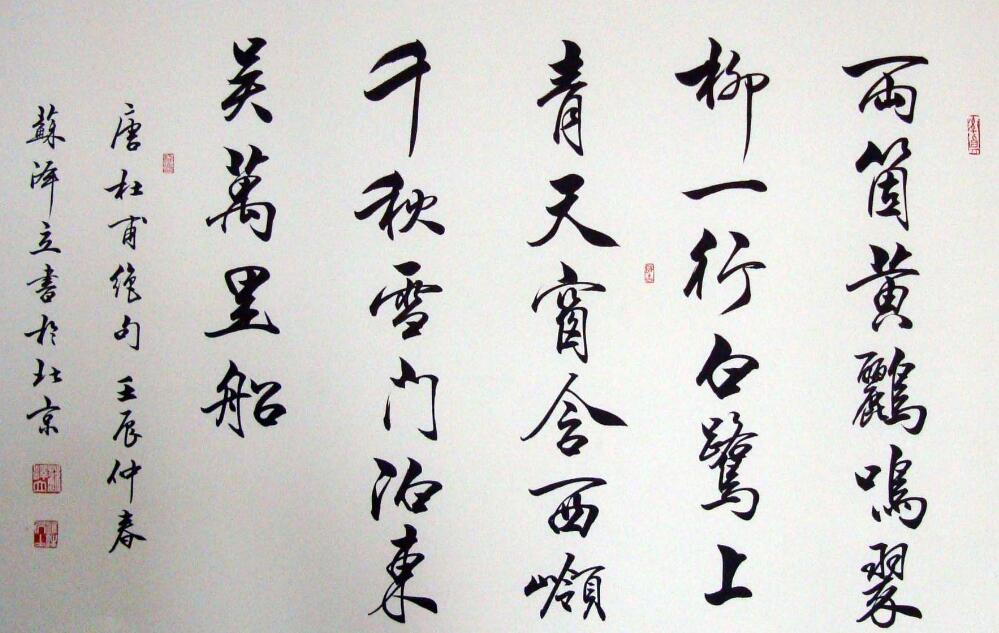 兩箇黃鸝鳴翠
柳一行白鷺上
青天窗含西嶺
千秋雪門泊東
吴萬里船
唐杜甫絕句壬辰仲春
蘇澤立書於北京